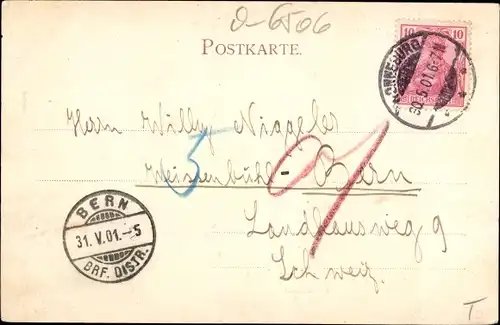 D-6506
POSTKARTE.
10 10
REICHSPOST
30.5.01.6-7
Herrn Willy Niggeler
5
Weissenbühl - Bern
Landhausweg 9
Schweiz.
BERN
31.V.01.-5
BRF. DISTR.
T